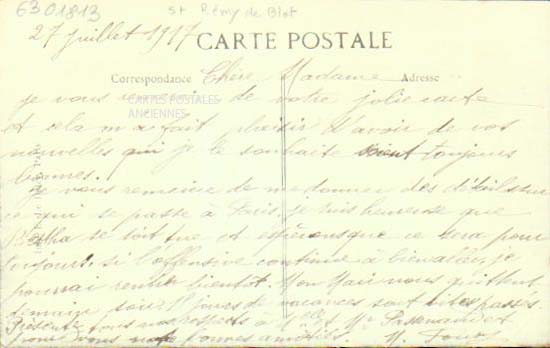 6301813
St Rémy de Blot
27 juillet 1917
CARTE POSTALE
Correspondance
Adresse
Chère Madame
je vous remercie de votre jolie carte
CARTES POSTALES
ANCIENNES
et cela m'a fait plaisir d'avoir de vos
nouvelles que je le souhaite sont toujours
bonnes.
je vous remercie de me donner des détails sur
ce qui se passe à Paris, je suis heureuse que
Bertha se soit tue et espérons que ce sera pour
toujours. si l'offensive continue à bien aller, je
pourrai rentrer bientôt. Mon Mari nous quittent
demain soir, jours de vacances sont vites passés
Présente tous nos respects à Mr et
pour vous nos bonnes amitiés.